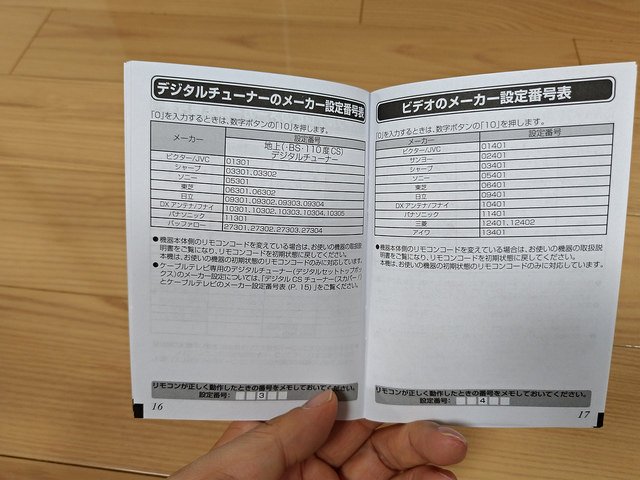 デジタルチューナーのメーカー設定番号表
「0」を入力するときは、数字ボタンの「10」を押します。
メーカー
設定番号
地上(・BS・110度CS)
デジタルチューナー
ビクター/JVC 01301
シャープ 03301、03302
ソニー 05301
東芝 06301、06302
日立 09301、09302、09303、09304
DX アンテナ/フナイ 10301、10302、10303、10304、10305
パナソニック 11301
バッファロー 27301、27302、27303、27304
●機器本体側のリモコンコードを変えている場合は、お使いの機器の取扱説
明書をご覧になり、リモコンコードを初期状態に戻してください。
本機は、お使いの機器の初期状態のリモコンコードのみに対応しています。
●ケーブルテレビ専用のデジタルチューナー(デジタルセットトップボッ
クス)のメーカー設定については、「デジタルCSチューナー(スカパー!)
とケーブルテレビのメーカー設定番号表(P. 15)」をご覧ください。
リモコンが正しく動作したときの番号をメモしておいてください。
設定番号: 3
16
ビデオのメーカー設定番号表
「0」を入力するときは、数字ボタンの「10」を押します。
メーカー 設定番号
ビクター/JVC 01401
サンヨー 02401
シャープ 03401
ソニー 05401
東芝 06401
日立 09401
DX アンテナ/フナイ 10401
パナソニック 11401
三菱 12401、12402
アイワ 13401
●機器本体側のリモコンコードを変えている場合は、お使いの機器の取扱説
明書をご覧になり、リモコンコードを初期状態に戻してください。
本機は、お使いの機器の初期状態のリモコンコードのみに対応しています。
リモコンが正しく動作したときの番号をメモしておいてください。
設定番号: 4
17